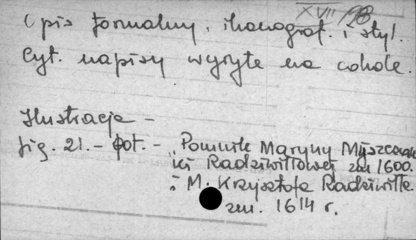 XVII/98
Opis formalny, ikonograf. i styl.
Cyt. napisy wyryte na cokole.
Ilustracje -
fig. 21. - fot. - "Pomnik Maryny Myszcowskiej
Radziwiłłowej zm 1600.
i M. Krzysztofa Radziwiłła.
zm. 1614 r.